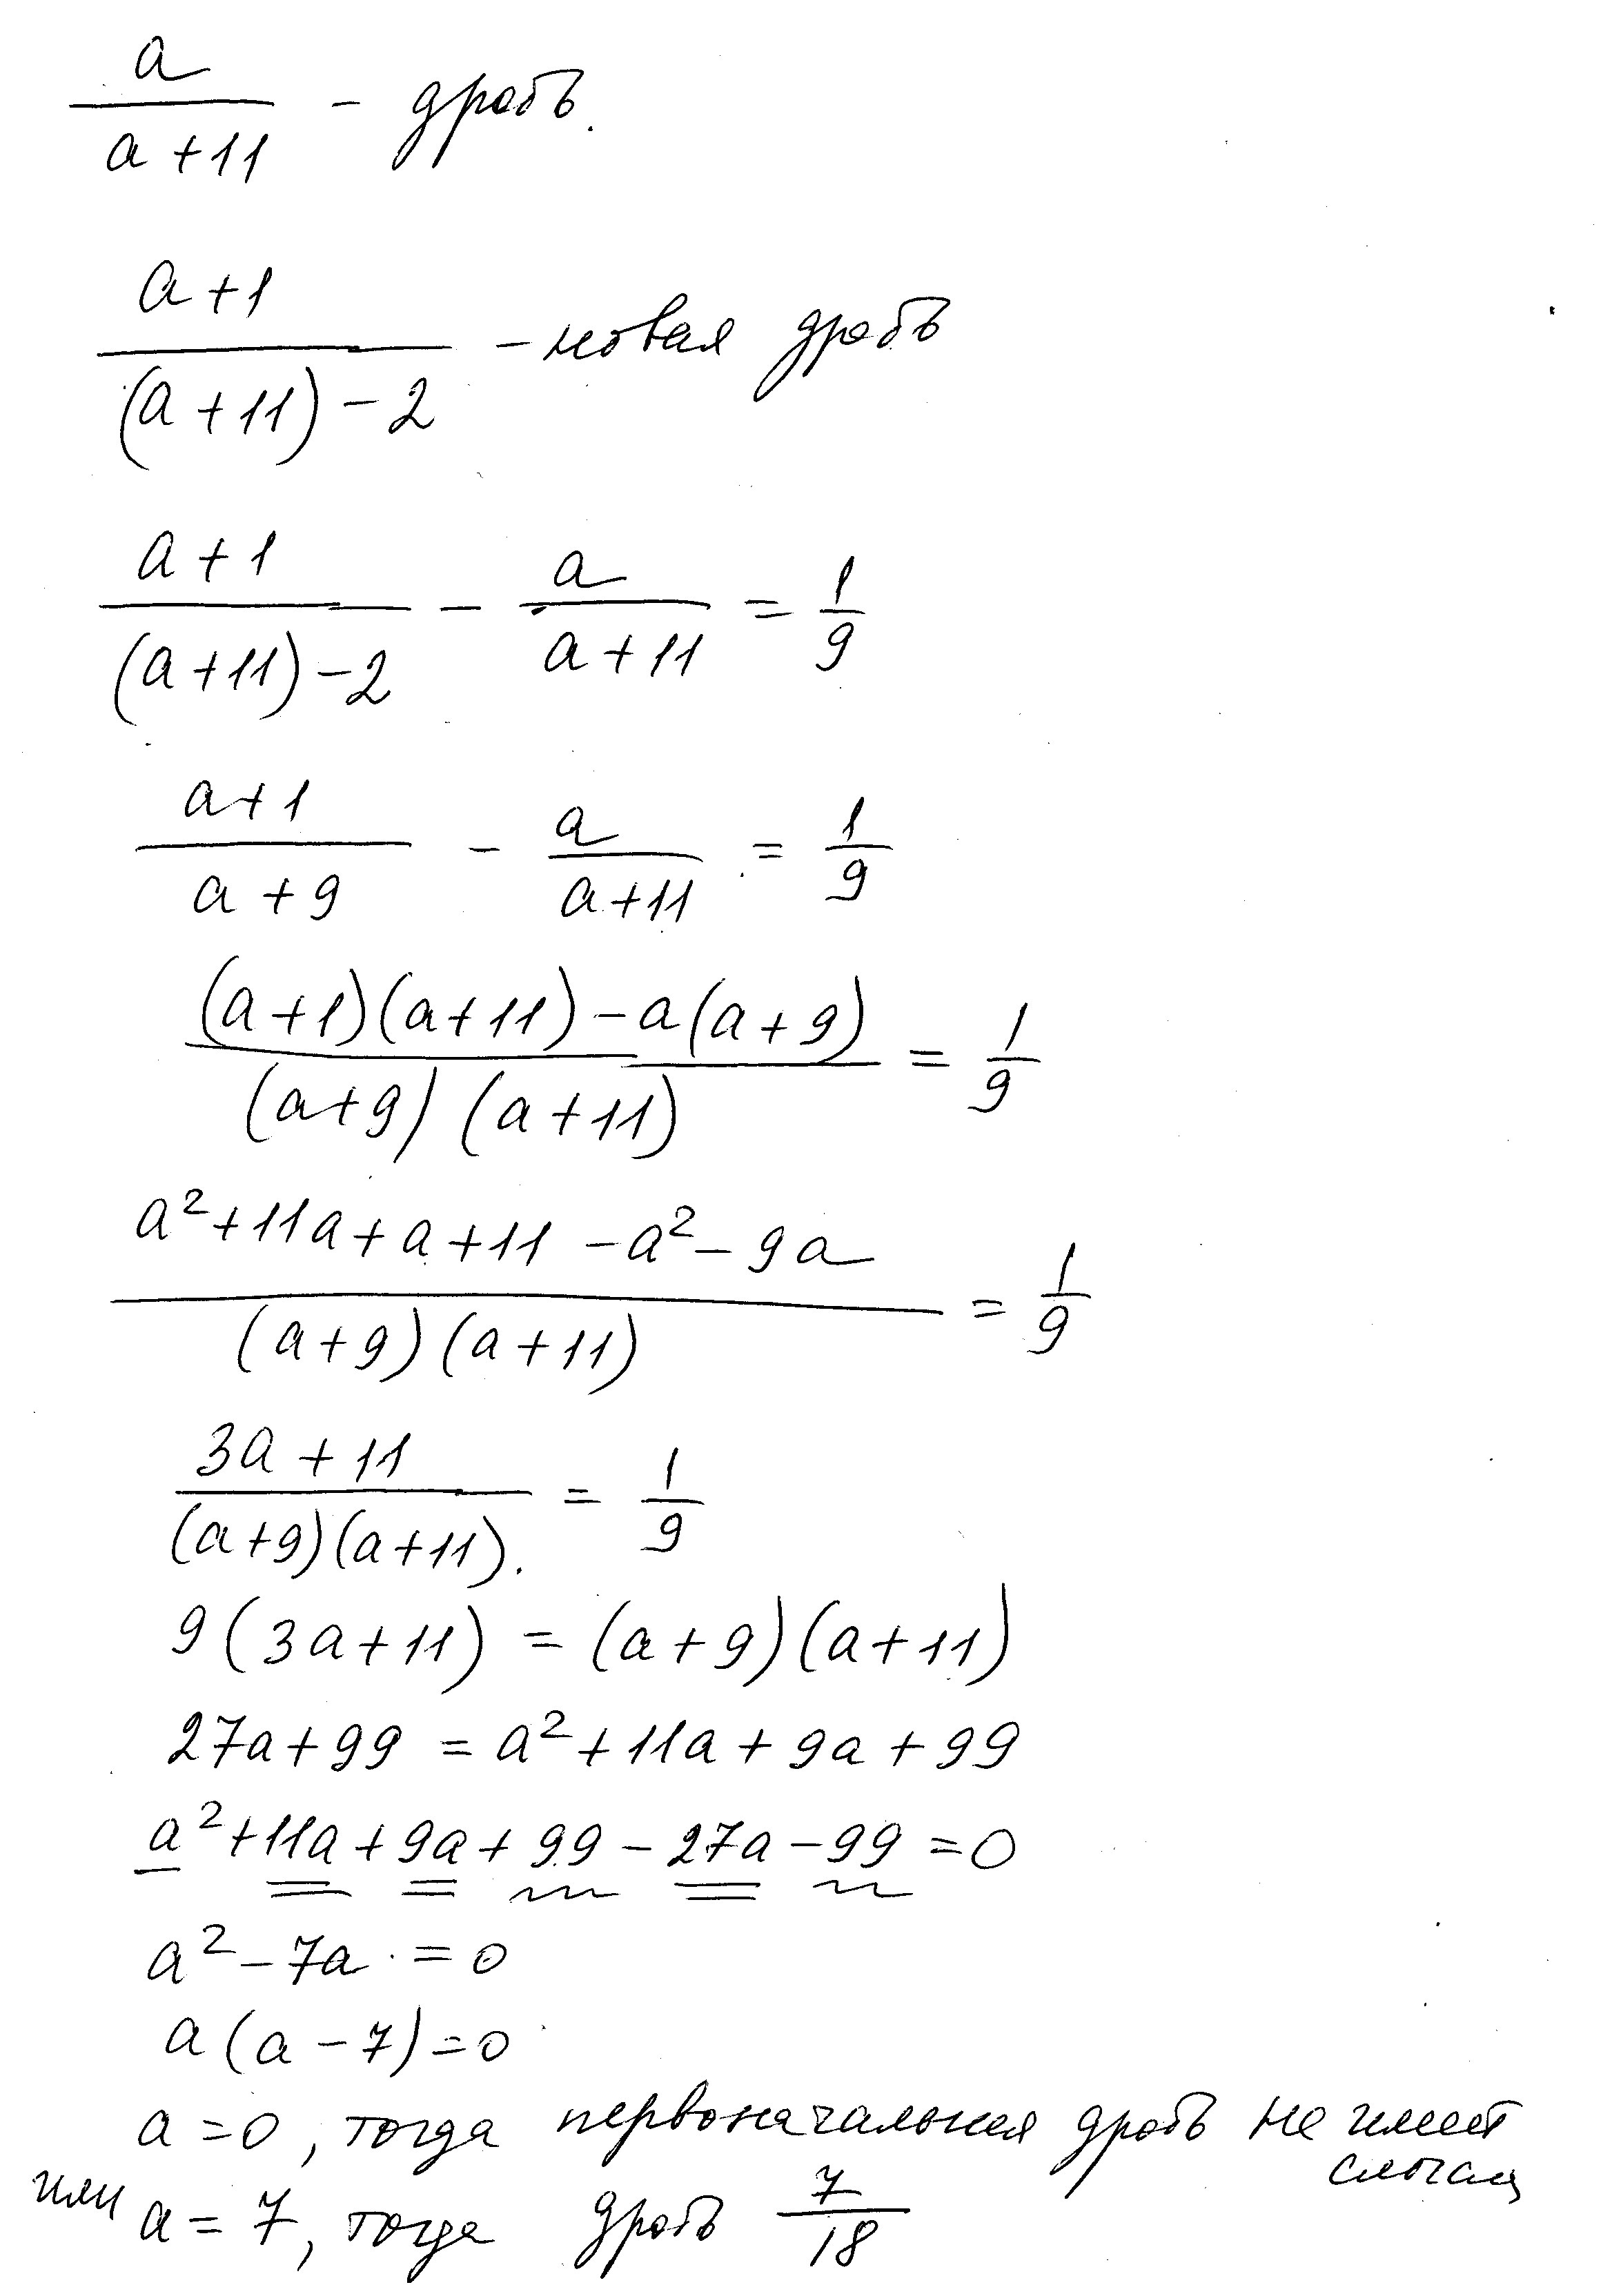 a/(a+11) - дробь.
(a+1)/((a+11)-2) - новая дробь
(a+1)/((a+11)-2) - a/(a+11) = 1/9
(a+1)/(a+9) - a/(a+11) = 1/9
((a+1)(a+11)-a(a+9))/((a+9)(a+11)) = 1/9
(a²+11a+a+11-a²-9a)/((a+9)(a+11)) = 1/9
(3a+11)/((a+9)(a+11)) = 1/9
9(3a+11) = (a+9)(a+11)
27a+99 = a²+11a+9a+99
a²+11a+9a+99-27a-99=0
a²-7a=0
a(a-7)=0
a=0, тогда первоначальная дробь не имеет смысла
или a=7, тогда дробь 7/18